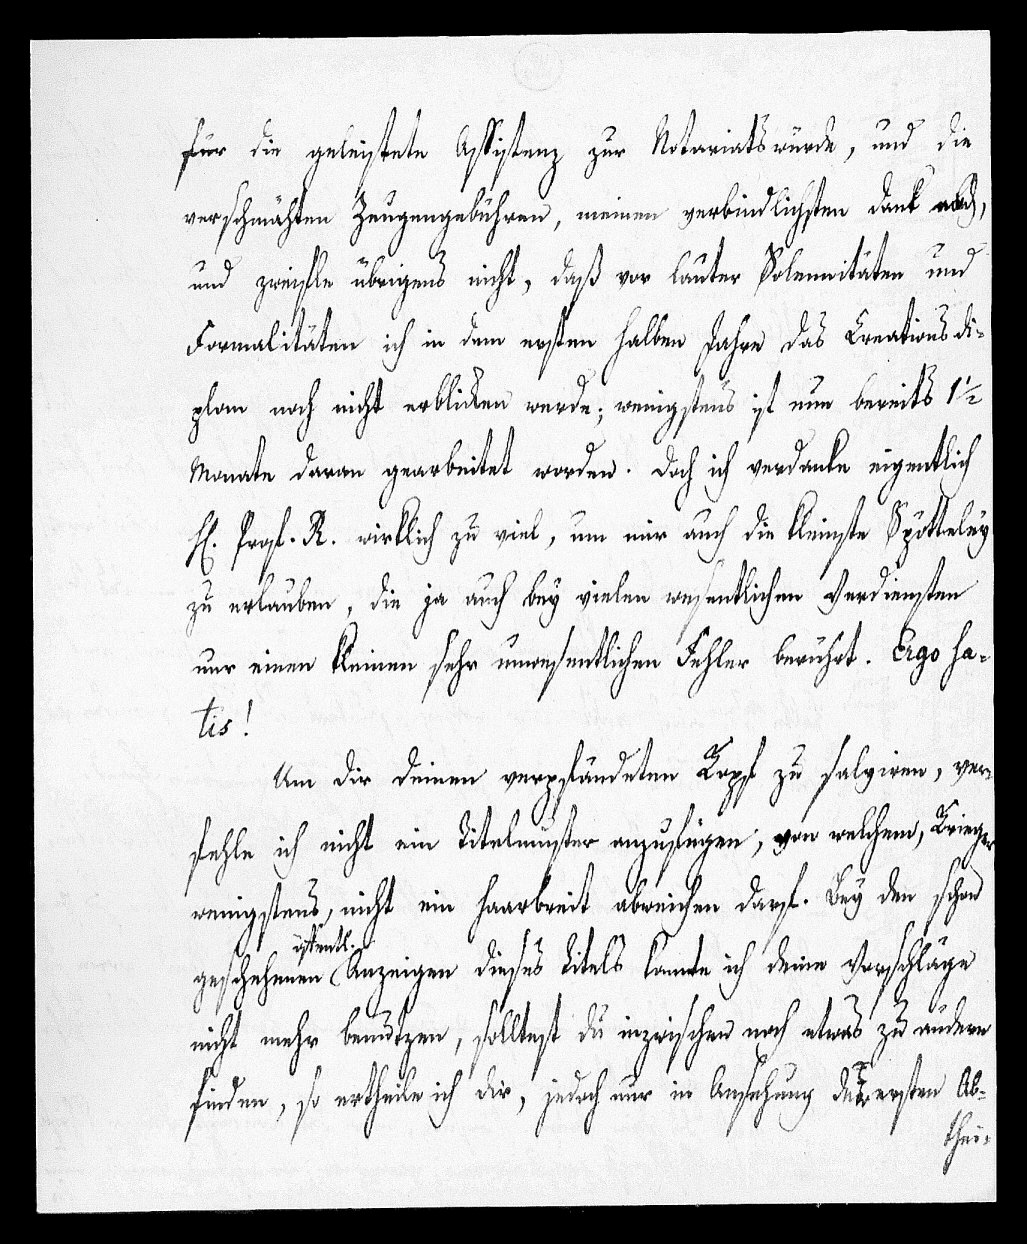 für die geleistete Assistenz zur Notariatswürde, und die
verschmähten Zeugengebühren, meinen verbindlichsten Dank ab,
und zweifle übrigens nicht, daß vor lauter Solennitäten und
Formalitäten ich in dem ersten halben Jahre das Creationsdi-
plom noch nicht erblicken werde; wenigstens ist nun bereits 1½
Monate daran gearbeitet worden. Doch ich verdanke eigentlich
H. Prof. R. wirklich zu viel, um mir auch die kleinste Spötteley
zu erlauben, die ja auch bey vielen wesentlichen Verdiensten
nur einen kleinen sehr unwesentlichen Fehler berührt. Ergo sa-
tis!
Um dir deinen verpfändeten Kopf zu salviren, ver-
fehle ich nicht ein Titelmuster anzufügen, von welchem, Krieger
wenigstens, nicht ein Haarbreit abweichen darf. Bey den schon
geschehenen öffentl. Anzeigen dieses Titels konnte ich deine Vorschläge
nicht mehr benutzen, solltest du inzwischen noch etwas zu ändern
finden, so ertheile ich dir, jedoch nur in Ansehung der ersten Ab-
thei-